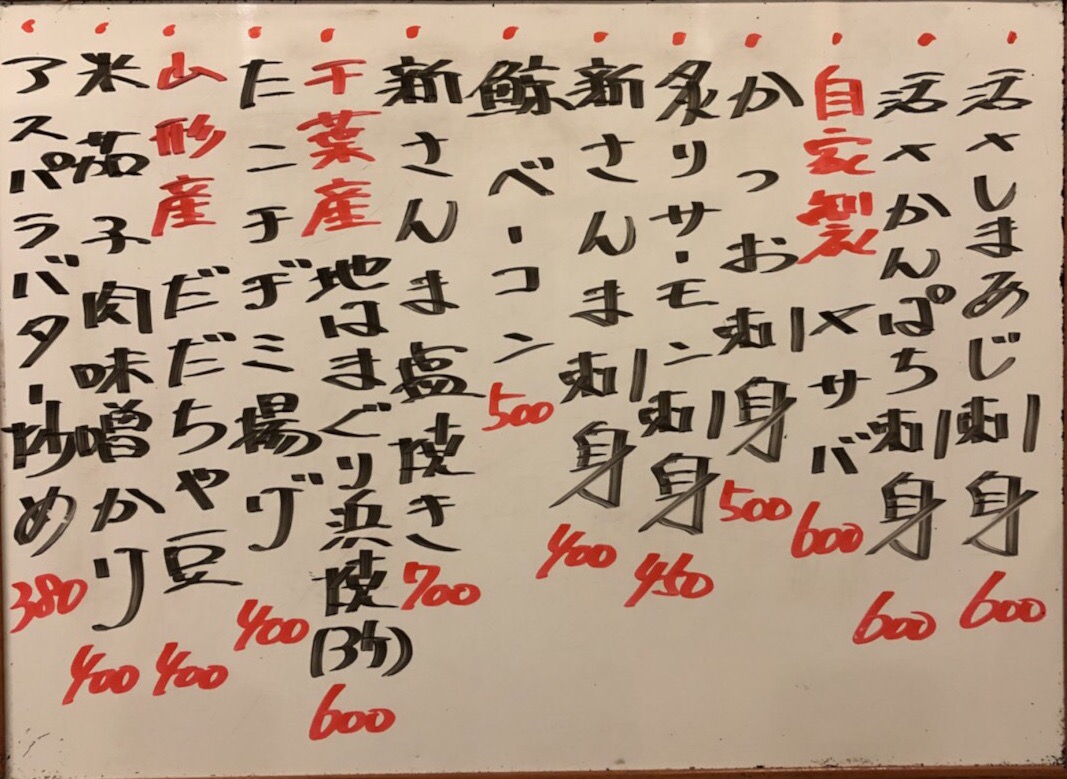 活〆しまあじ刺身 600
活〆かんぱち刺身 600
自家製〆サバ 600
かつお刺身 500
炙りサーモン刺身 450
新さんま刺身 400
鯨ベーコン 500
新さんま塩焼き 700
千葉産地はまぐり浜焼(3ケ) 600
たこチヂミ揚げ 400
山形産だだちゃ豆 400
米茄子肉味噌かけ 400
アスパラバター炒め 380